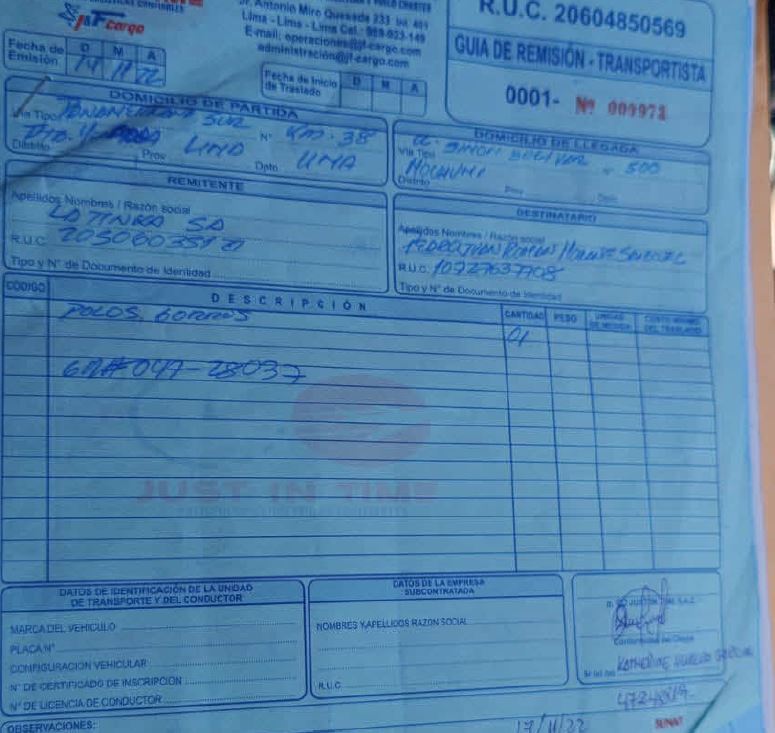 J&F cargo
Jr. Antonio Miro Quesada 233 Int. 401
Lima - Lima - Lima Cel.: 989-023-149
E-mail: operaciones@jf-cargo.com
administración@jf-cargo.com
R.U.C. 20604850569
GUIA DE REMISIÓN - TRANSPORTISTA
0001- Nº 000978
Fecha de Emisión D M A
14 11 22
Fecha de Inicio de Traslado D M A
DOMICILIO DE PARTIDA
Vía Tipo Panamericana Sur
Nº Km. 38
Distrito Prov. Lima Dpto. Lima
DOMICILIO DE LLEGADA
Vía Tipo Simon Bolivar Nº 500
Mochumi
Distrito Prov. Dpto.
REMITENTE
Apellidos Nombres / Razón social
LATINKA SA
R.U.C.
Tipo y N° de Documento de Identidad
DESTINATARIO
Apellidos Nombres / Razón social
R.U.C. 10727637708
Tipo y N° de Documento de Identidad
CODIGO DESCRIPCIÓN CANTIDAD PESO UNIDAD DE MEDIDA COSTO MINIMO DEL TRASLADO
POLOS, GORROS 01
GR# 049-28037
JUST IN TIME
DATOS DE IDENTIFICACIÓN DE LA UNIDAD
DE TRANSPORTE Y DEL CONDUCTOR
MARCA DEL VEHICULO
PLACA Nº
CONFIGURACION VEHICULAR
N° DE CERTIFICADO DE INSCRIPCIÓN
N° DE LICENCIA DE CONDUCTOR
DATOS DE LA EMPRESA
SUBCONTRATADA
NOMBRES Y APELLIDOS RAZON SOCIAL
R.U.C.
Katherine
OBSERVACIONES:
17/11/22
SUNAT